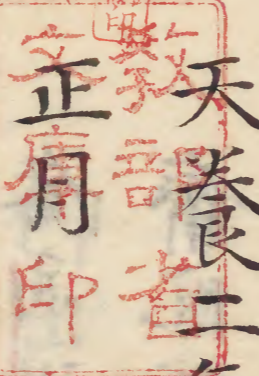 天養二
正月
教部省
文庫印